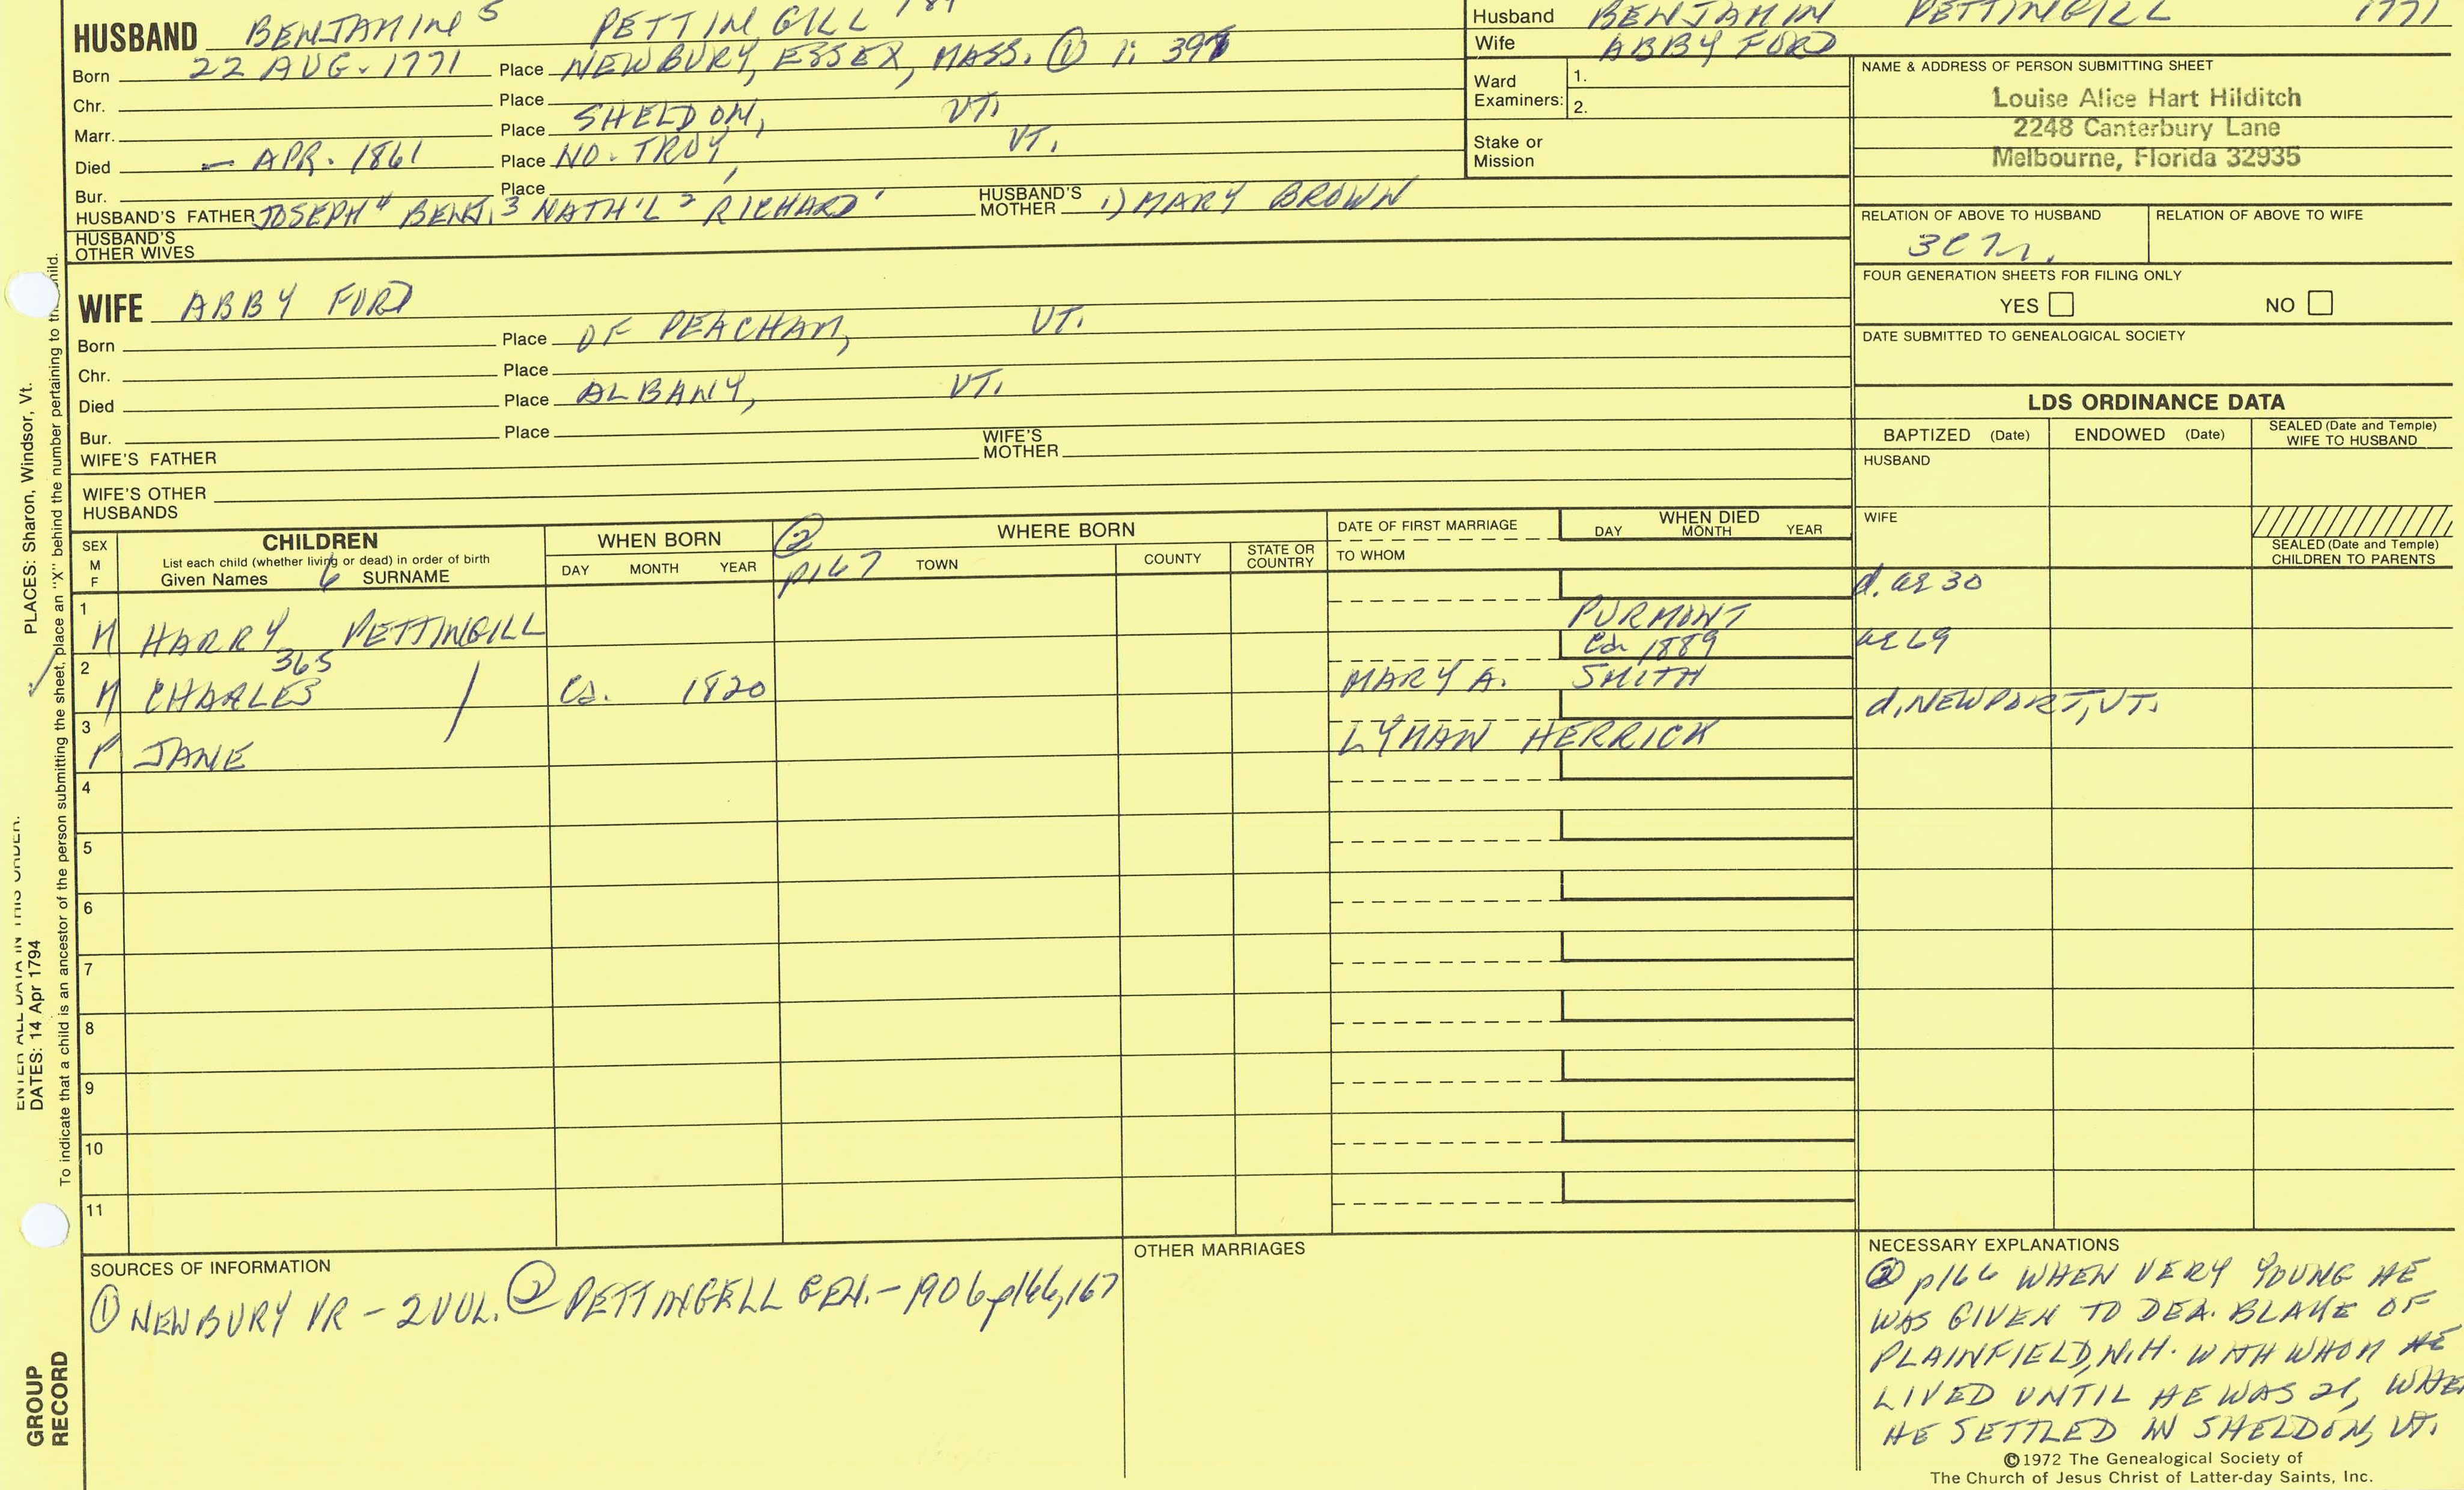 HUSBAND BENJAMIN 5 PETTINGILL
Born 22 AUG. 1771 Place NEWBURY, ESSEX, MASS. ① 1: 397
Chr. Place
Marr. Place SHELDON, VT.
Died - APR. 1861 Place NO. TROY, VT.
Bur. Place
HUSBAND'S FATHER JOSEPH 4 BENJ. 3 NATH'L 2 RICHARD ' HUSBAND'S MOTHER 1) MARY BROWN
HUSBAND'S OTHER WIVES
Husband BENJAMIN PETTINGILL 1771
Wife ABBY FORD
Ward Examiners: 1.
2.
Stake or Mission
NAME & ADDRESS OF PERSON SUBMITTING SHEET
Louise Alice Hart Hilditch
2248 Canterbury Lane
Melbourne, Florida 32935
RELATION OF ABOVE TO HUSBAND RELATION OF ABOVE TO WIFE
FOUR GENERATION SHEETS FOR FILING ONLY
YES NO
DATE SUBMITTED TO GENEALOGICAL SOCIETY
WIFE ABBY FORD
Born Place OF PEACHAM, VT.
Chr. Place
Died Place ALBANY, VT.
Bur. Place
WIFE'S FATHER WIFE'S MOTHER
WIFE'S OTHER HUSBANDS
LDS ORDINANCE DATA
BAPTIZED (Date) ENDOWED (Date) SEALED (Date and Temple) WIFE TO HUSBAND
HUSBAND
WIFE
SEALED (Date and Temple) CHILDREN TO PARENTS
SEX M F
CHILDREN
List each child (whether living or dead) in order of birth
Given Names 6 SURNAME
WHEN BORN
DAY MONTH YEAR
② p167
WHERE BORN
TOWN COUNTY STATE OR COUNTRY
DATE OF FIRST MARRIAGE
TO WHOM
WHEN DIED
DAY MONTH YEAR
1 M HARRY PETTINGILL PURMONT d. ae 30
2 M 365 CHARLES / Ca. 1820 MARY A. SMITH Ca 1889 ae 69
3 F JANE LYMAN HERRICK d. NEWPORT, VT.
4
5
6
7
8
9
10
11
SOURCES OF INFORMATION
① NEWBURY VR - 2 VOL. ② PETTINGELL GEN. - 1906 p166,167
OTHER MARRIAGES
NECESSARY EXPLANATIONS
② p166 WHEN VERY YOUNG HE
WAS GIVEN TO DEA. BLAKE OF
PLAINFIELD, N.H. WITH WHOM HE
LIVED UNTIL HE WAS 21, WHEN
HE SETTLED IN SHELDON, VT.
©1972 The Genealogical Society of
The Church of Jesus Christ of Latter-day Saints, Inc.
PLACES: Sharon, Windsor, Vt.
To indicate that a child is an ancestor of the person submitting the sheet, place an "X" behind the number pertaining to that child.
ENTER ALL DATA IN THIS ORDER:
DATES: 14 Apr 1794
GROUP
RECORD